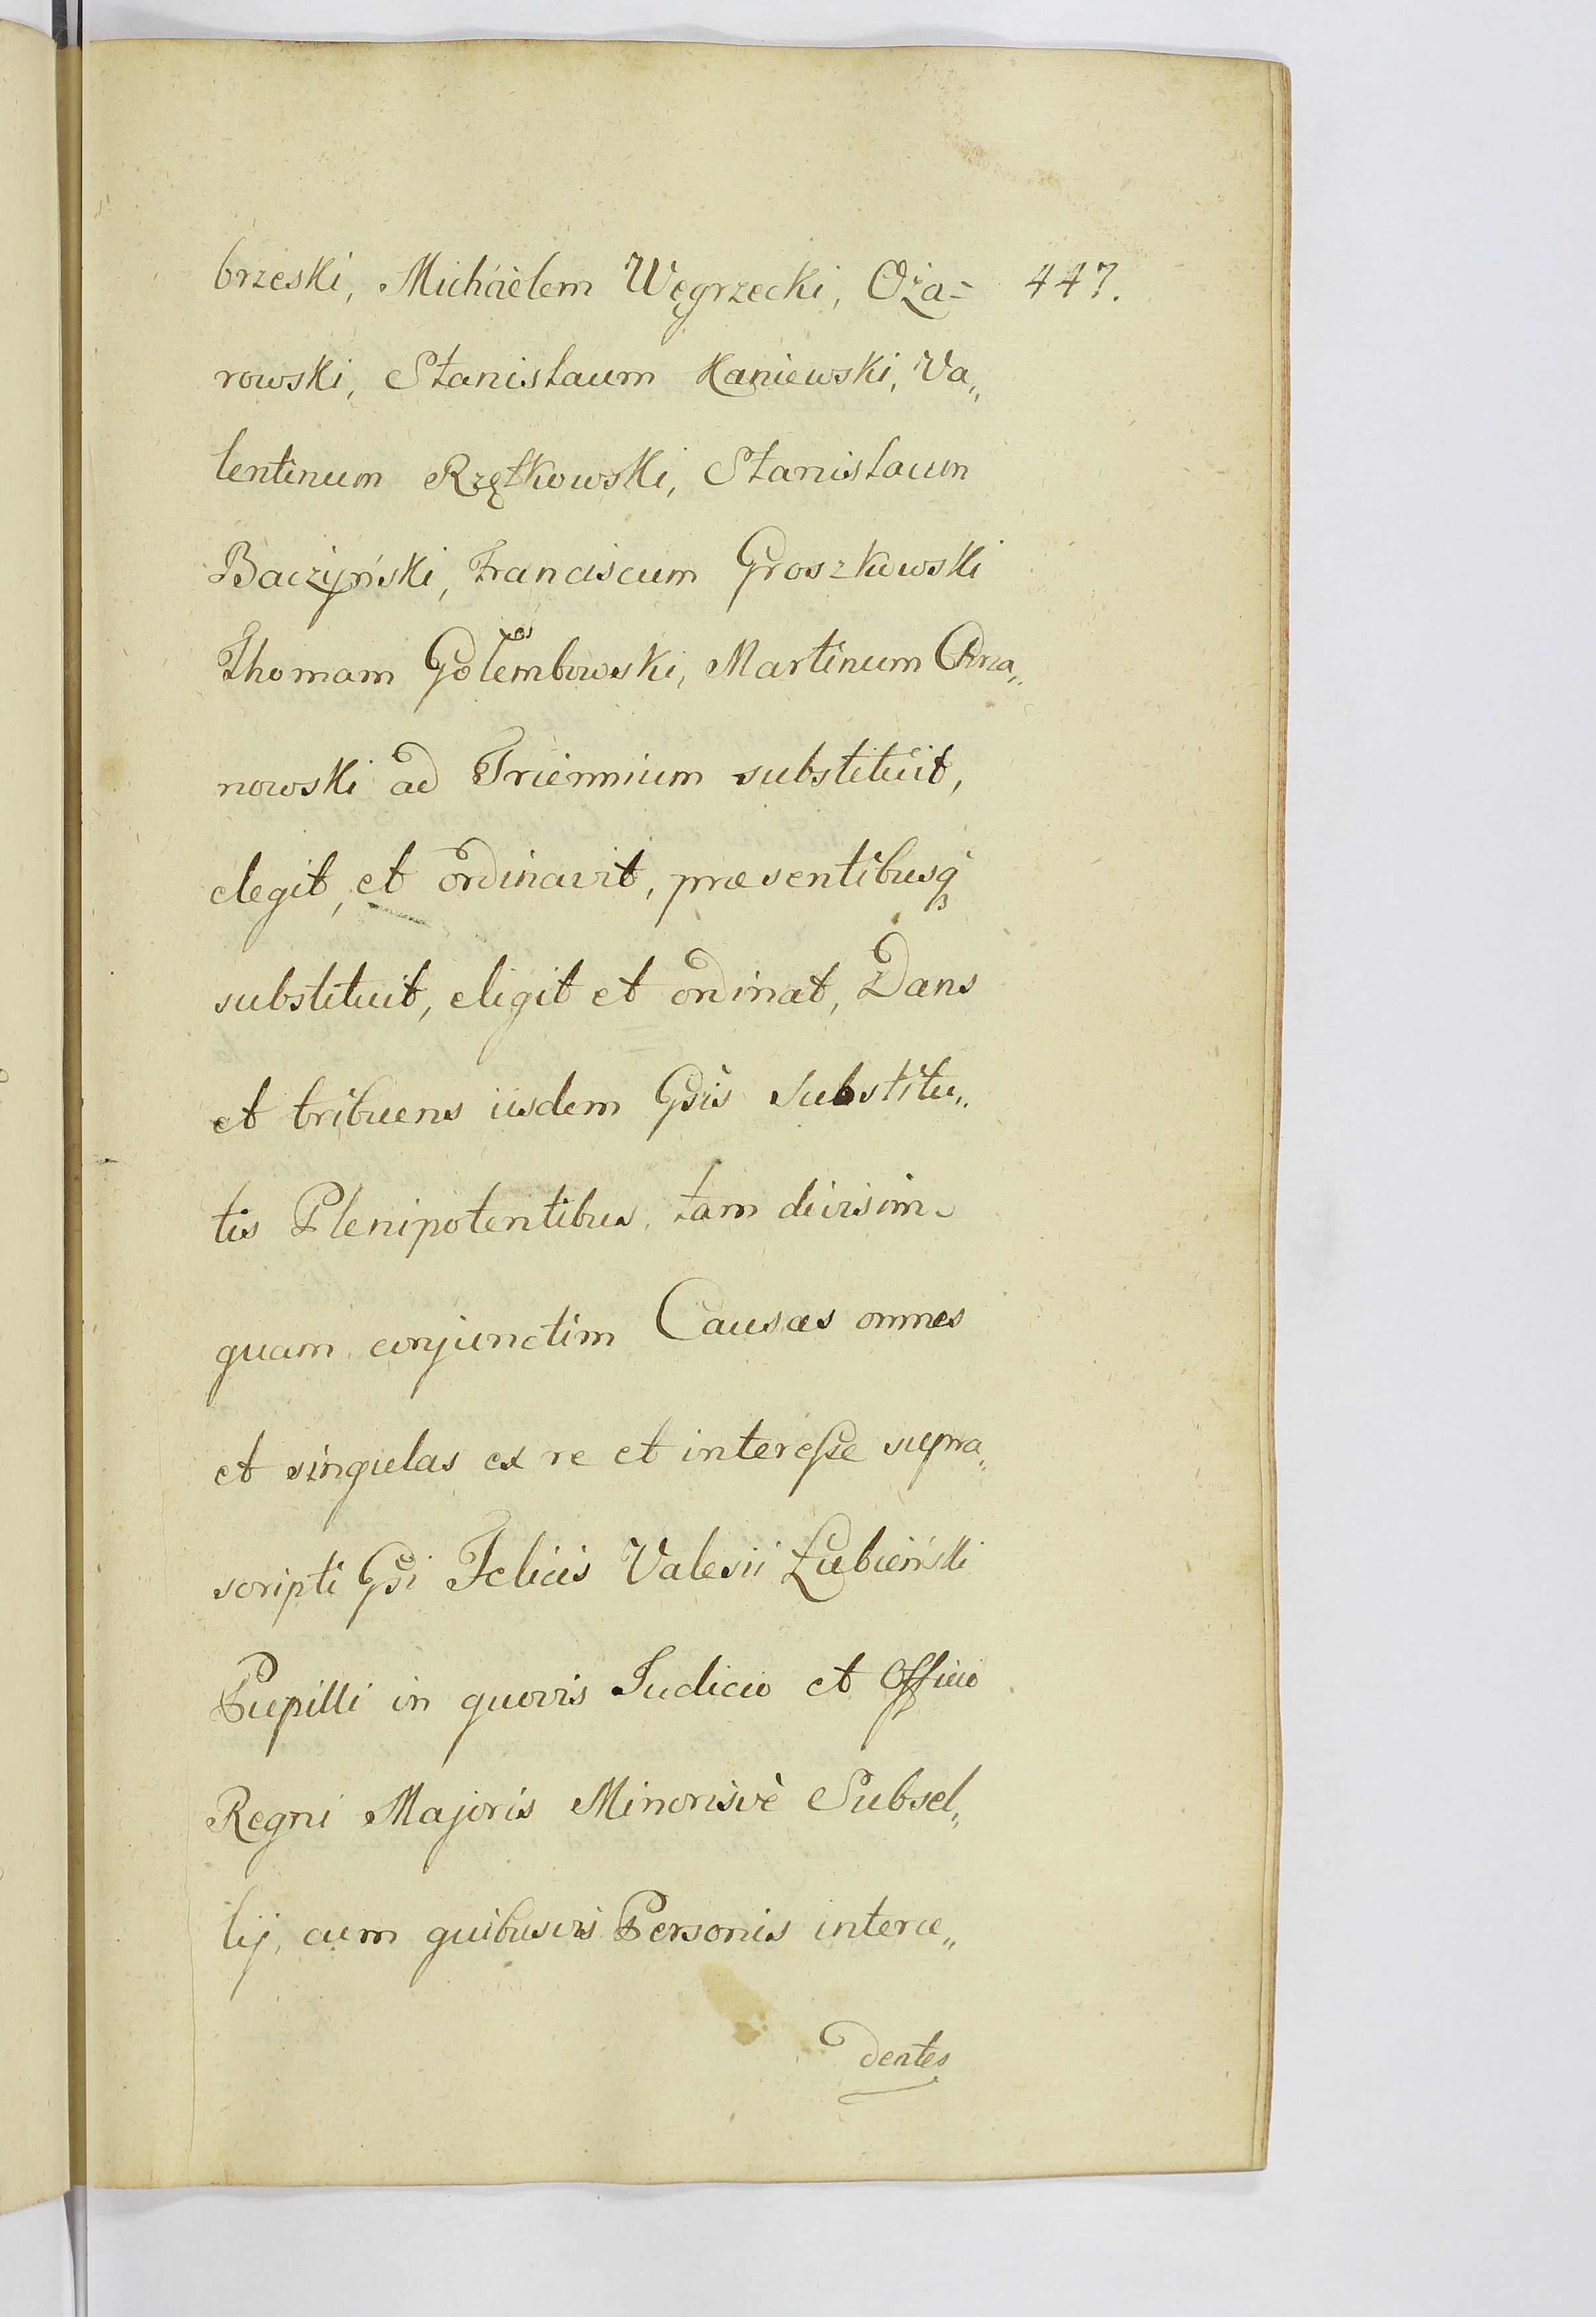 brzeski, Michäelem Węgrzecki, Oża= 447.
rowski, Stanisłaum Kaniewski, Va„
lentinum Rzętkowski, Stanisłaum
Baczÿński, Franciscum Groszkowski
Thomam Gołembowski, Martinum
nowski ad Triennium substituit,
elegit, et ordinavit, præsentibusq̃
substituit, eligit et ordinat, Dans
et tribuens iisdem Gsis Substitu„
tis Plenipotentibus, tam divisim
quam conjunctim Causas omnes
et singulas ex re et interesse supra„
scripti Gsi Felicis Valesii Łubieński
Pupilli in quovis Judicio et Officio
Regni Majoris Minorisvè Subsel„
lij, cum quibusvis Personis interce„
dentes